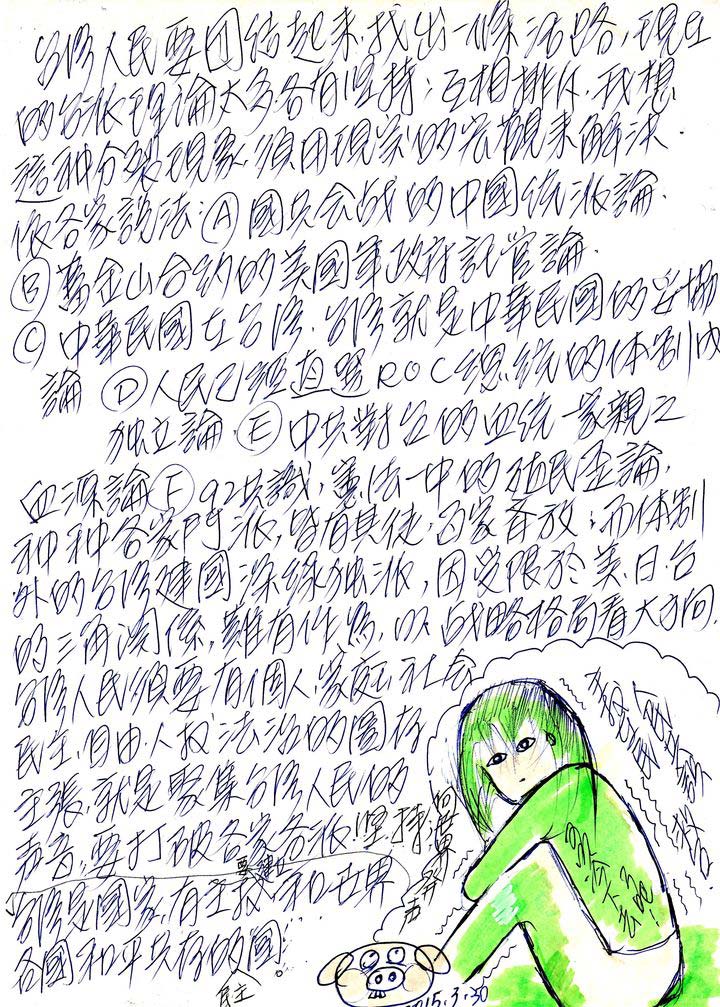 台灣人民要團結起來,找出一條活路,現在
的台派理論太多,各有坚持;互相排斥,我想
這種分裂現象,須用現實的宏觀來解決.
依各家說法:Ⓐ國共会战的中國統派論.
Ⓑ舊金山合約的美國軍政府託管論.
Ⓒ中華民國在台灣.台灣就是中華民國的妥協
論 Ⓓ人民已經直選ROC總統的体制內
独立論.Ⓔ中共對台的血統一家親之
血源論Ⓕ92共識,憲法一中的殖民
種種各家門派,皆有其徒,百家齊放;而体制
外的台灣建國深綠独派,因受限於美.日.台
的三角関係,難有作為,以战略格局看大方向,
台灣人民須要有個人.家庭.社会
民主.自由.人权.法治的圖存
主張,就是聚集台灣人民的
声音,要打破各家各派.坚持
要建立
台灣是國家,有主義 和世界
各國和平共存的國!
民主
2015.3.30